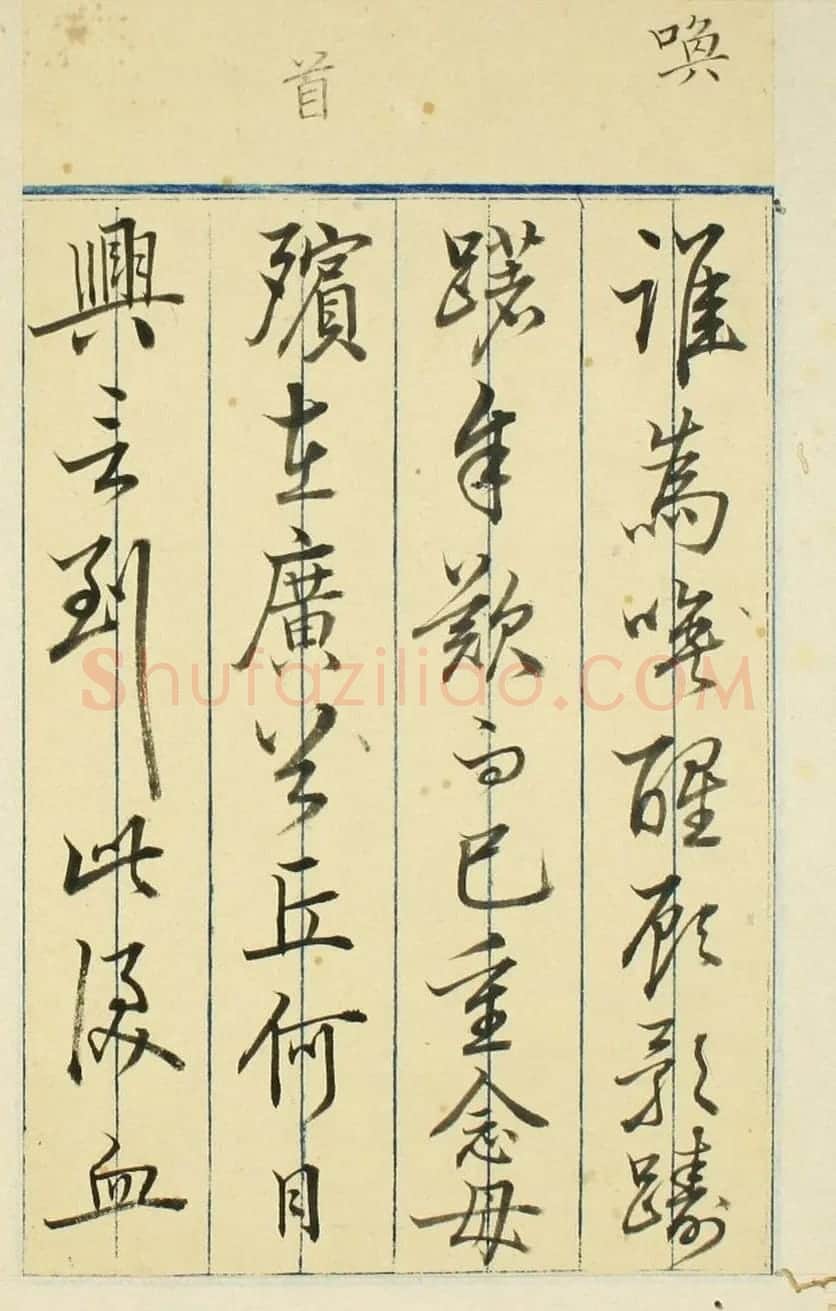 喚
首
誰為喚醒顧影躊
躇歎而已重念母
殯在廣首丘何日
興言到此淚血
Shufaziliao.COM